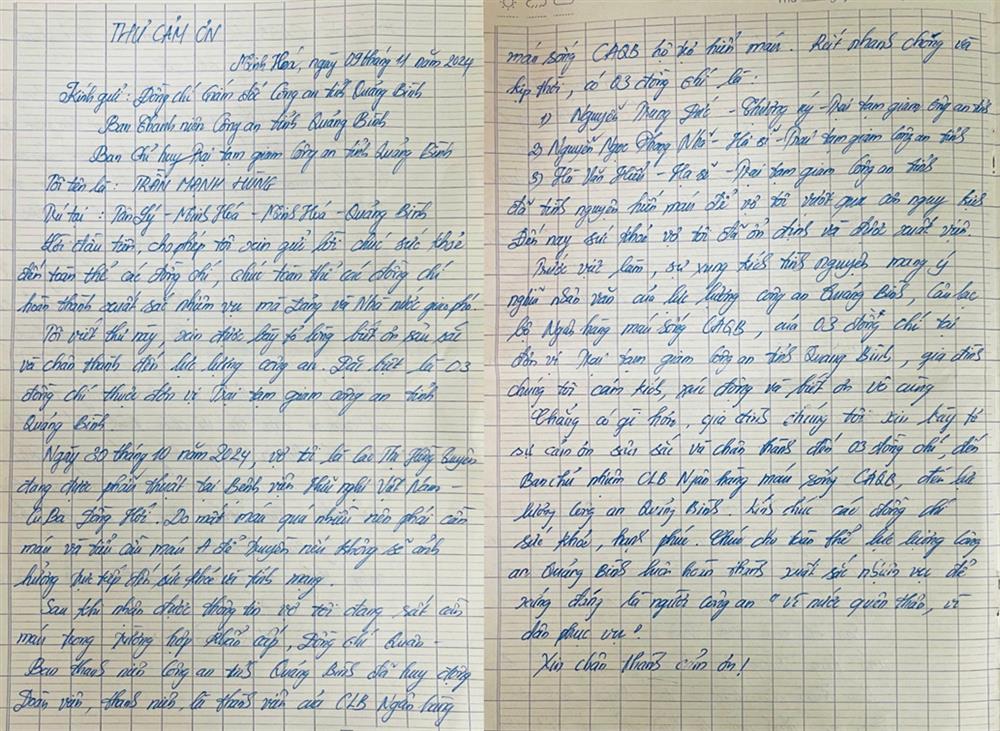 THƯ CẢM ƠN
Minh Hoá, ngày 09 tháng 11 năm 2024
Kính gửi: Đồng chí Giám đốc Công an tỉnh Quảng Bình
Ban Thanh niên Công an tỉnh Quảng Bình
Ban Chỉ huy Trại tạm giam Công an tỉnh Quảng Bình
Tôi tên là: TRẦN MẠNH HÙNG
Trú tại: Tân Lý - Minh Hoá - Minh Hoá - Quảng Bình
Lời đầu tiên, cho phép tôi xin gửi lời chúc sức khoẻ
đến toàn thể các đồng chí, chúc toàn thể các đồng chí
hoàn thành xuất sắc nhiệm vụ mà Đảng và Nhà nước giao phó.
Tôi viết thư này, xin được bày tỏ lòng biết ơn sâu sắc
và chân thành đến lực lượng công an. Đặc biệt là 03
đồng chí thuộc đơn vị Trại tạm giam công an tỉnh
Quảng Bình.
Ngày 30 tháng 10 năm 2024, vợ tôi là Cao Thị Hồng Quyên
đang được phẫu thuật tại Bệnh viện Hữu nghị Việt Nam -
Cu Ba Đồng Hới. Do mất máu quá nhiều nên phải cần
máu và tiểu cầu máu A để truyền nếu không sẽ ảnh
hưởng trực tiếp đến sức khoẻ và tính mạng.
Sau khi nhận được thông tin vợ tôi đang rất cần
máu trong trường hợp khẩn cấp, Đồng chí Quân -
Ban thanh niên Công an tỉnh Quảng Bình đã huy động
Đoàn viên, thanh niên, là thành viên của CLB Ngân hàng
máu sống CAQB hỗ trợ hiến máu. Rất nhanh chóng và
kịp thời, có 03 đồng chí là:
1) Nguyễn Trung Đức - Thượng uý - Trại tạm giam Công an tỉnh
2) Nguyễn Ngọc Phong Nhã - Hạ sĩ - Trại tạm giam Công an tỉnh
3) Hà Văn Hiếu - Hạ sĩ - Trại tạm giam Công an tỉnh
đã tình nguyện hiến máu để vợ tôi vượt qua cơn nguy kịch
Đến nay sức khoẻ vợ tôi đã ổn định và được xuất viện
Trước việc làm, sự xung kích tình nguyện mang ý
nghĩa nhân văn của lực lượng công an Quảng Bình, Câu lạc
bộ Ngân hàng máu sống CAQB, của 03 đồng chí tại
đơn vị Trại tạm giam Công an tỉnh Quảng Bình, gia đình
chúng tôi cảm kích, xúc động và biết ơn vô cùng
Chẳng có gì hơn, gia đình chúng tôi xin bày tỏ
sự cảm ơn sâu sắc và chân thành đến 03 đồng chí, đến
Ban chủ nhiệm CLB Ngân hàng máu sống CAQB, đến lực
lượng Công an Quảng Bình. Kính chúc các đồng chí
sức khoẻ, hạnh phúc. Chúc cho toàn thể lực lượng công
an Quảng Bình luôn hoàn thành xuất sắc nhiệm vụ để
xứng đáng là người công an "vì nước quên thân, vì
dân phục vụ".
Xin chân thành cảm ơn!